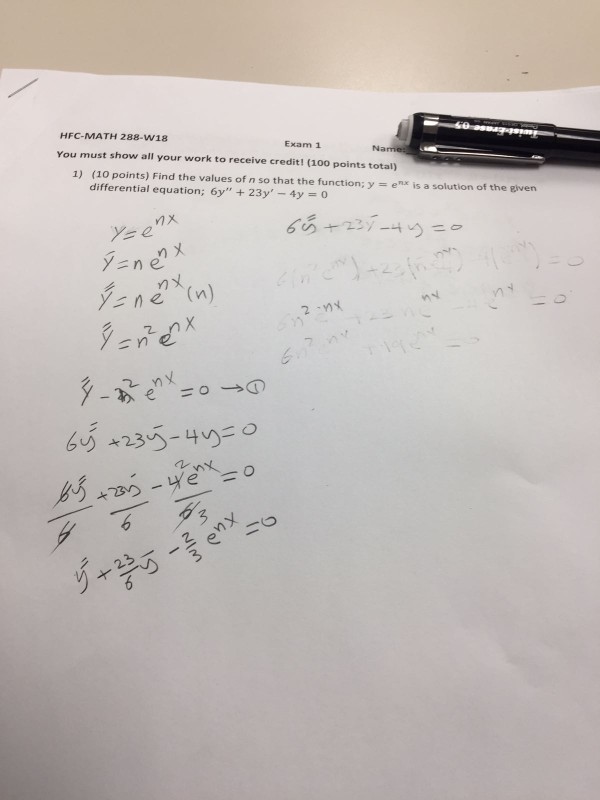 HFC-MATH 288-W18
Exam 1
Name:
Twist-Erase 0.5
You must show all your work to receive credit! (100 points total)
1) (10 points) Find the values of n so that the function; y = e^{nx} is a solution of the given
differential equation; 6y'' + 23y' − 4y = 0
y = e^{nx}
ȳ = n e^{nx}
y̿ = n e^{nx} (n)
y̿ = n² e^{nx}
y̿ - n² e^{nx} = 0 → ①
6y̿ + 23ȳ - 4y = 0
6y̿/6 + 23ȳ/6 - 4 2 e^{nx}/6 3 = 0
y̿ + 23/6 ȳ - 2/3 e^{nx} = 0
6y̿ + 23ȳ - 4y = 0
6(n² e^{nx}) + 23(n e^{nx}) = 0
= 0
= 0